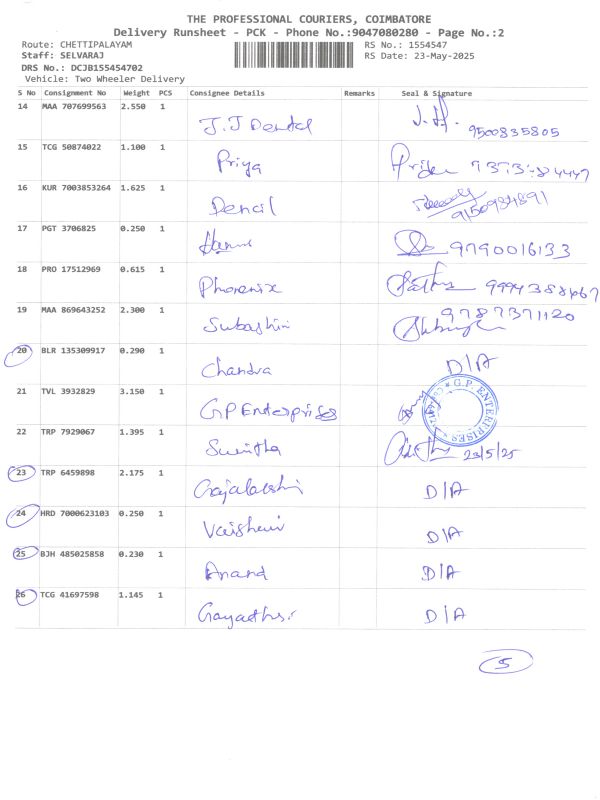 THE PROFESSIONAL COURIERS, COIMBATORE
Delivery Runsheet - PCK - Phone No.:9047080280 - Page No.:2
Route: CHETTIPALAYAM RS No.: 1554547
Staff: SELVARAJ RS Date: 23-May-2025
DRS No.: DCJB155454702
Vehicle: Two Wheeler Delivery
S No Consignment No Weight PCS Consignee Details Remarks Seal & Signature
14 MAA 707699563 2.550 1 J.J Dental 9500835805
15 TCG 50874022 1.100 1 Priya
16 KUR 7003853264 1.625 1 Dencil
17 PGT 3706825 0.250 1 9790016133
18 PRO 17512969 0.615 1 Phoenix
19 MAA 869643252 2.300 1 Subashini 9787371120
20 BLR 135309917 0.290 1 Chandra D/A
21 TVL 3932829 3.150 1 G.P Enterprises G.P. ENTERPRISES
22 TRP 7929067 1.395 1 23/5/25
23 TRP 6459898 2.175 1 D/A
24 HRD 7000623103 0.250 1 D/A
25 BJH 485025858 0.230 1 Anand D/A
26 TCG 41697598 1.145 1 D/A
5